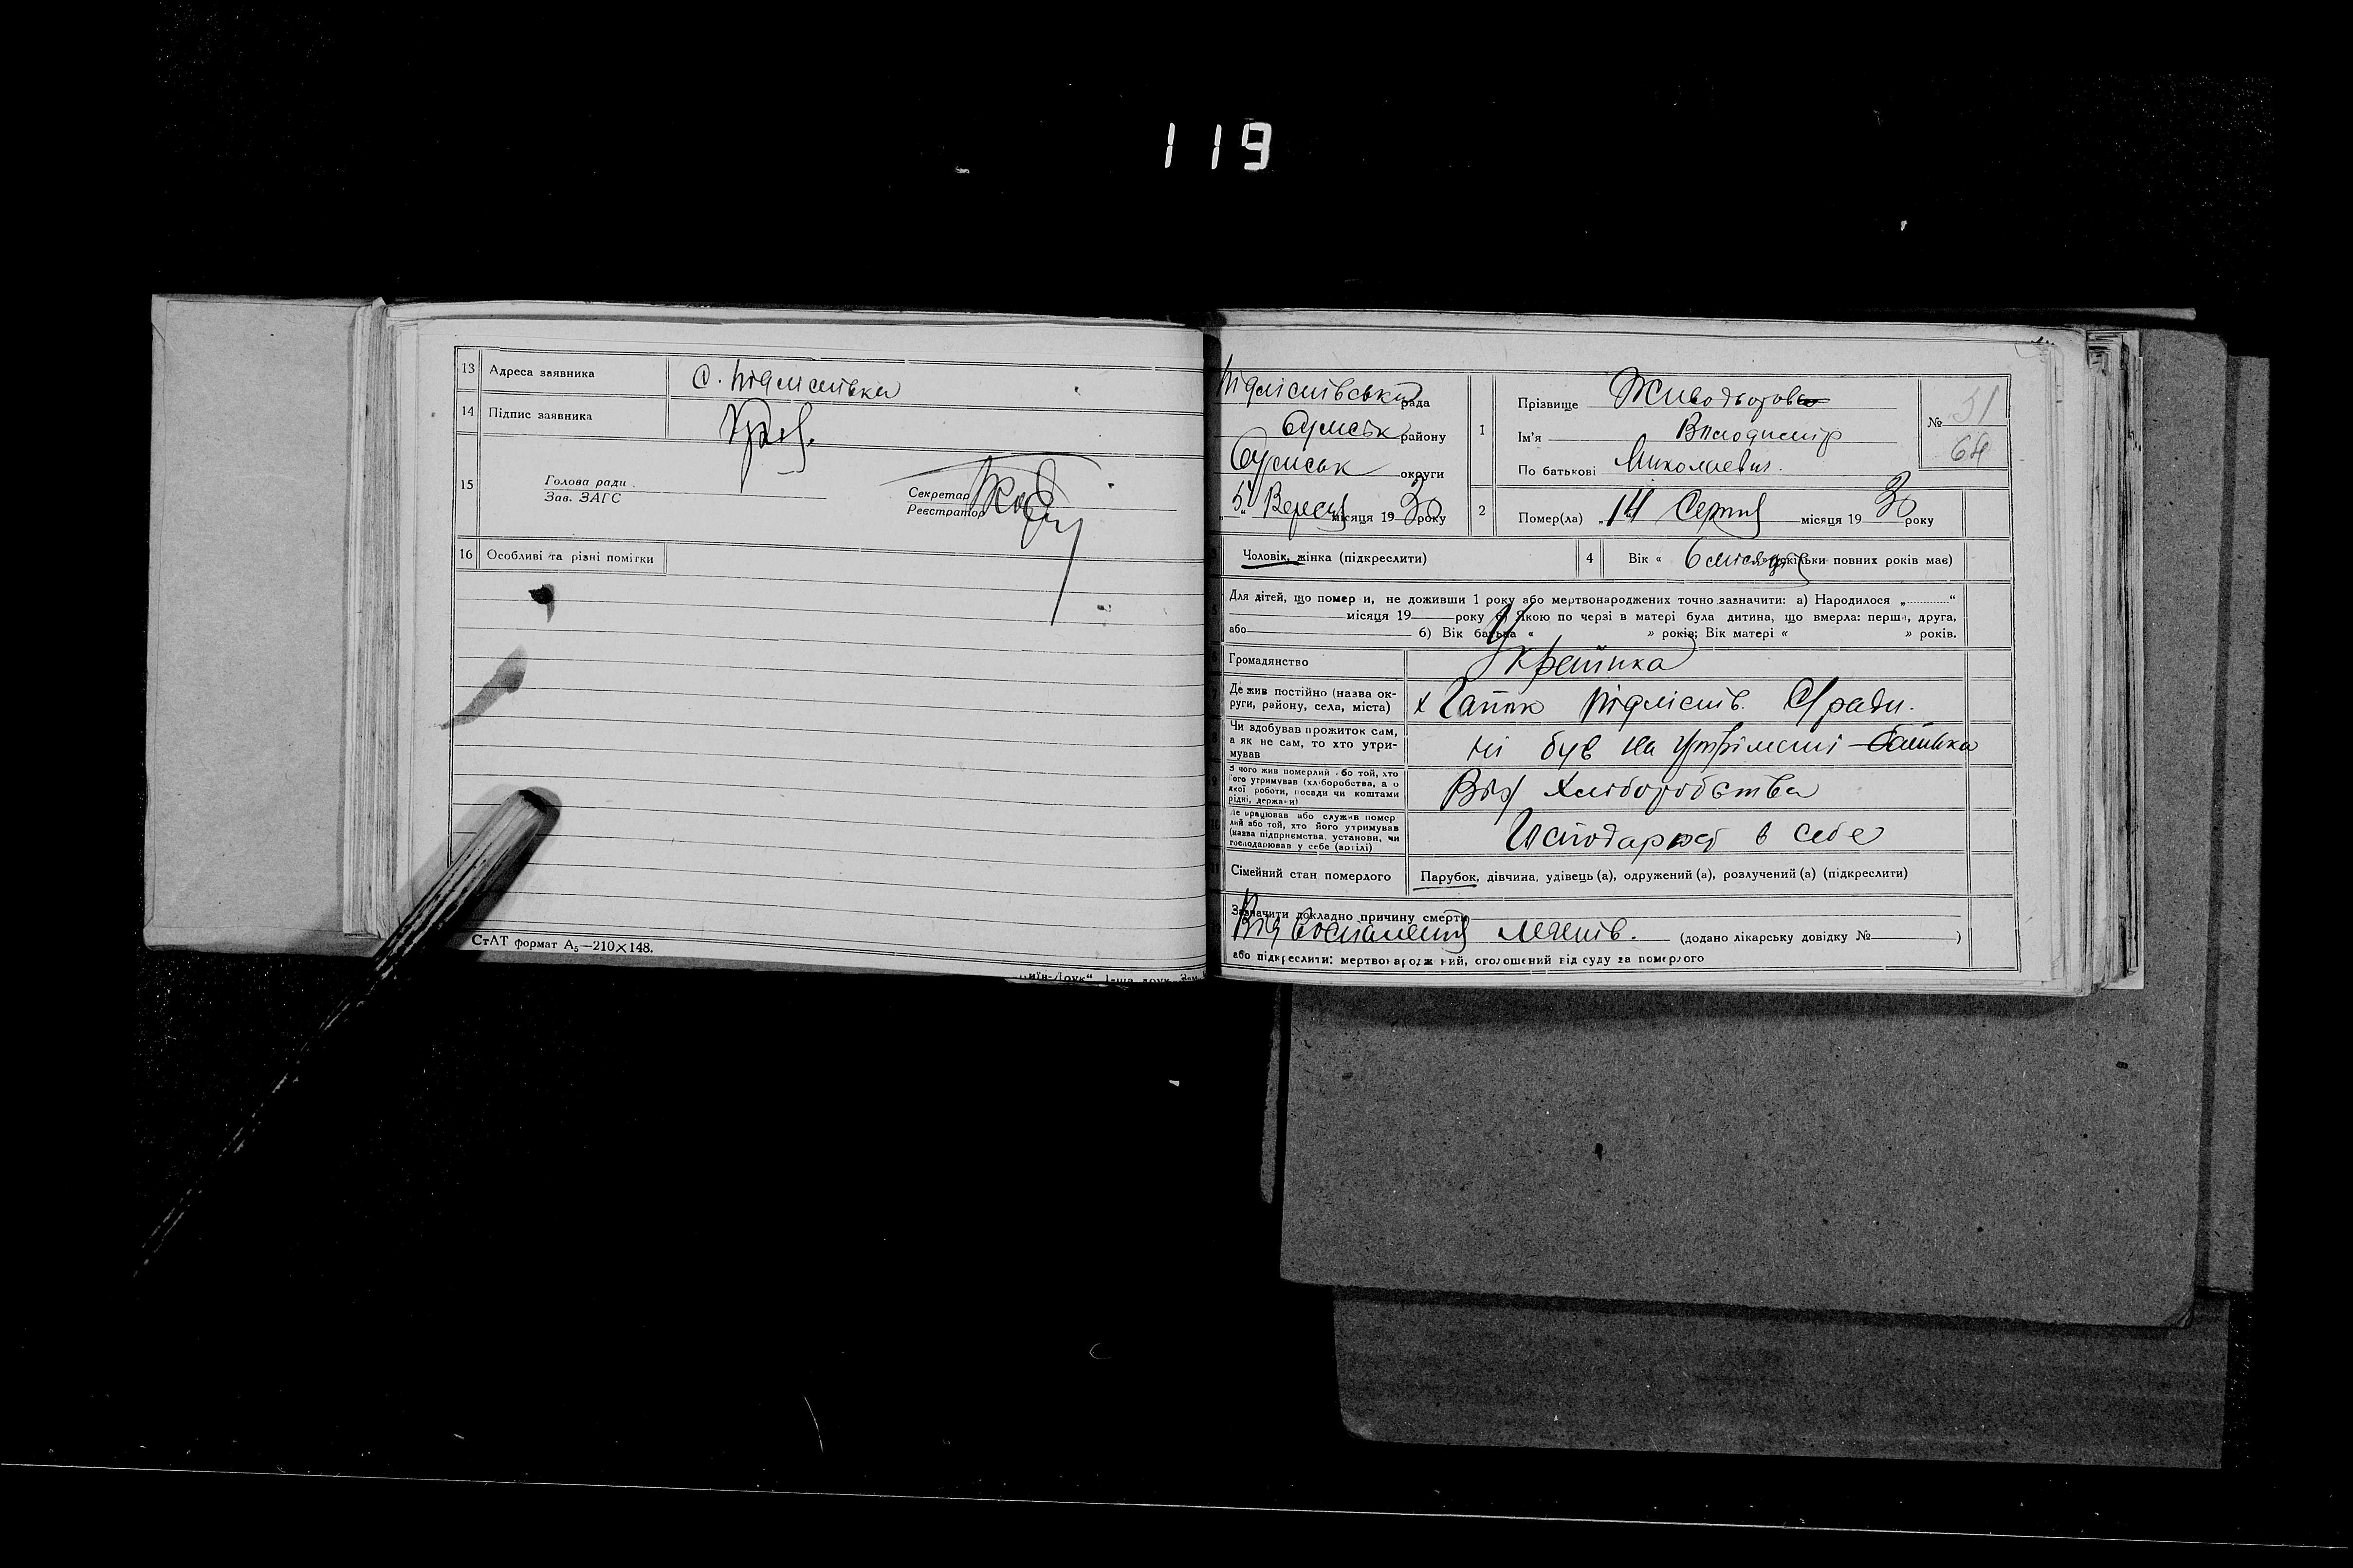 119
13 Адреса заявника с. Підліснівка
14 Підпис заявника
15 Голова ради
Зав. ЗАГС
Секретар
Реєстратор
16 Особливі та різні помітки
СтАТ формат А5—210×148.
Підліснівська рада
Сумськ району
Сумськ округи
„5“ Вересня місяця 1930 року
1 Прізвище Живодьорова
Ім'я Володимир
По батькові Миколаєвич.
№ 51
64
2 Помер(ла) „14 Серпня місяця 1930 року
3 Чоловік, жінка (підкреслити)
4 Вік « 6 місяців скільки повних років має)
5 Для дітей, що померли, не доживши 1 року або мертвонароджених точно зазначити: а) Народилося „ “
місяця 19 року б) Якою по черзі в матері була дитина, що вмерла: перша, друга,
або б) Вік батька « » років; Вік матері « » років.
6 Громадянство Українка
7 Де жив постійно (назва ок-
руги, району, села, міста) х Гапон Підлісн. С/ради.
8 Чи здобував прожиток сам,
а як не сам, то хто утри-
мував ні був на утрімані батька
9 З чого жив померлий або той, хто
його утримував (хліборобства, а о
якої роботи, посади чи коштами
рідні, держави) Від хліборобства
10 Де працював або служив помер
лий або той, хто його утримував
(назва підприємства, установи, чи
господарював у себе (артілі) Господарює в себе
11 Сімейний стан померлого Парубок, дівчина, удівець (а), одружений (а), розлучений (а) (підкреслити)
Зазначити докладно причину смерти
Від Воспаления легенів. (додано лікарську довідку № )
або підкреслити: мертвонароджений, оголошений від суду за померлого